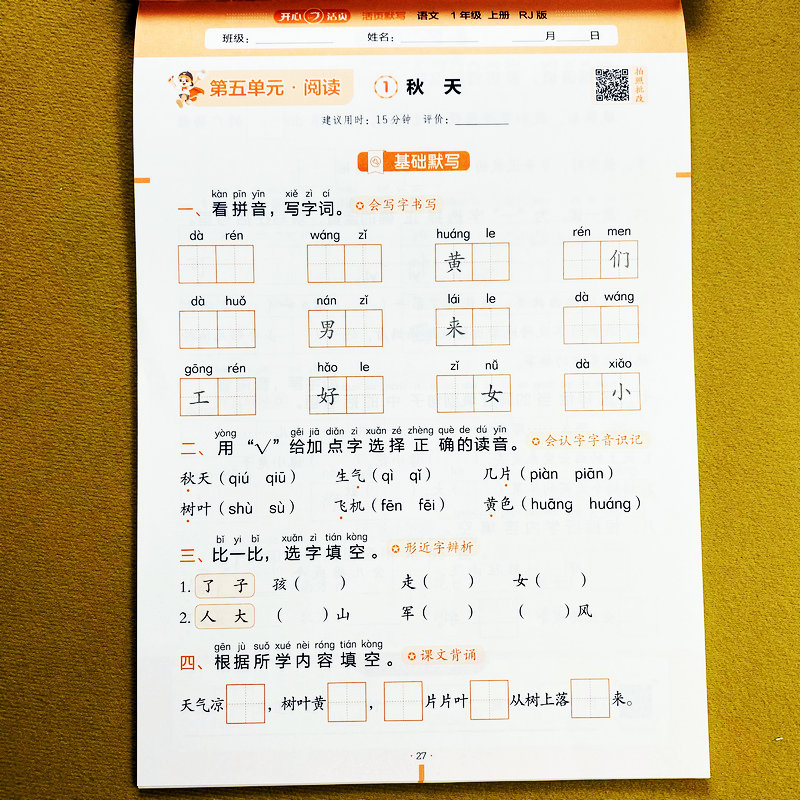 开心 活页 活页默写 语文 1年级 上册 RJ版
班级： 姓名： 月 日
第五单元·阅读 ① 秋 天
拍照批改
建议用时：15分钟 评价：
基础默写
kàn pīn yīn xiě zì cí
一、看拼音，写字词。 会写字书写
dà rén wáng zǐ huáng le rén men
黄 们
dà huǒ nán zǐ lái le dà wáng
男 来
gōng rén hǎo le zǐ nǚ dà xiǎo
工 好 女 小
yòng gěi jiā diǎn zì xuǎn zé zhèng què de dú yīn
二、用“√”给加点字选择正确的读音。 会认字字音识记
秋天（qiú qiū） 生气（qì qǐ） 几片（piàn piān）
树叶（shù sù） 飞机（fēn fēi） 黄色（huāng huáng）
bǐ yi bǐ xuǎn zì tián kòng
三、比一比，选字填空。 形近字辨析
1. 了 子 孩（ ） 走（ ） 女（ ）
2. 人 大 （ ）山 军（ ） （ ）风
gēn jù suǒ xué nèi róng tián kòng
四、根据所学内容填空。 课文背诵
天气凉 ，树叶黄 ， 片片叶 从树上落 来。
·27·